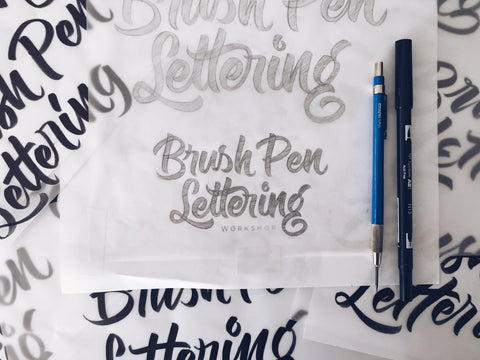 Brush Pen
Lettering
Brush Pen
Lettering
WORKSHOP
Brush Pen
Lettering
Brush Pen
Lettering
Pen
Lettering
N15